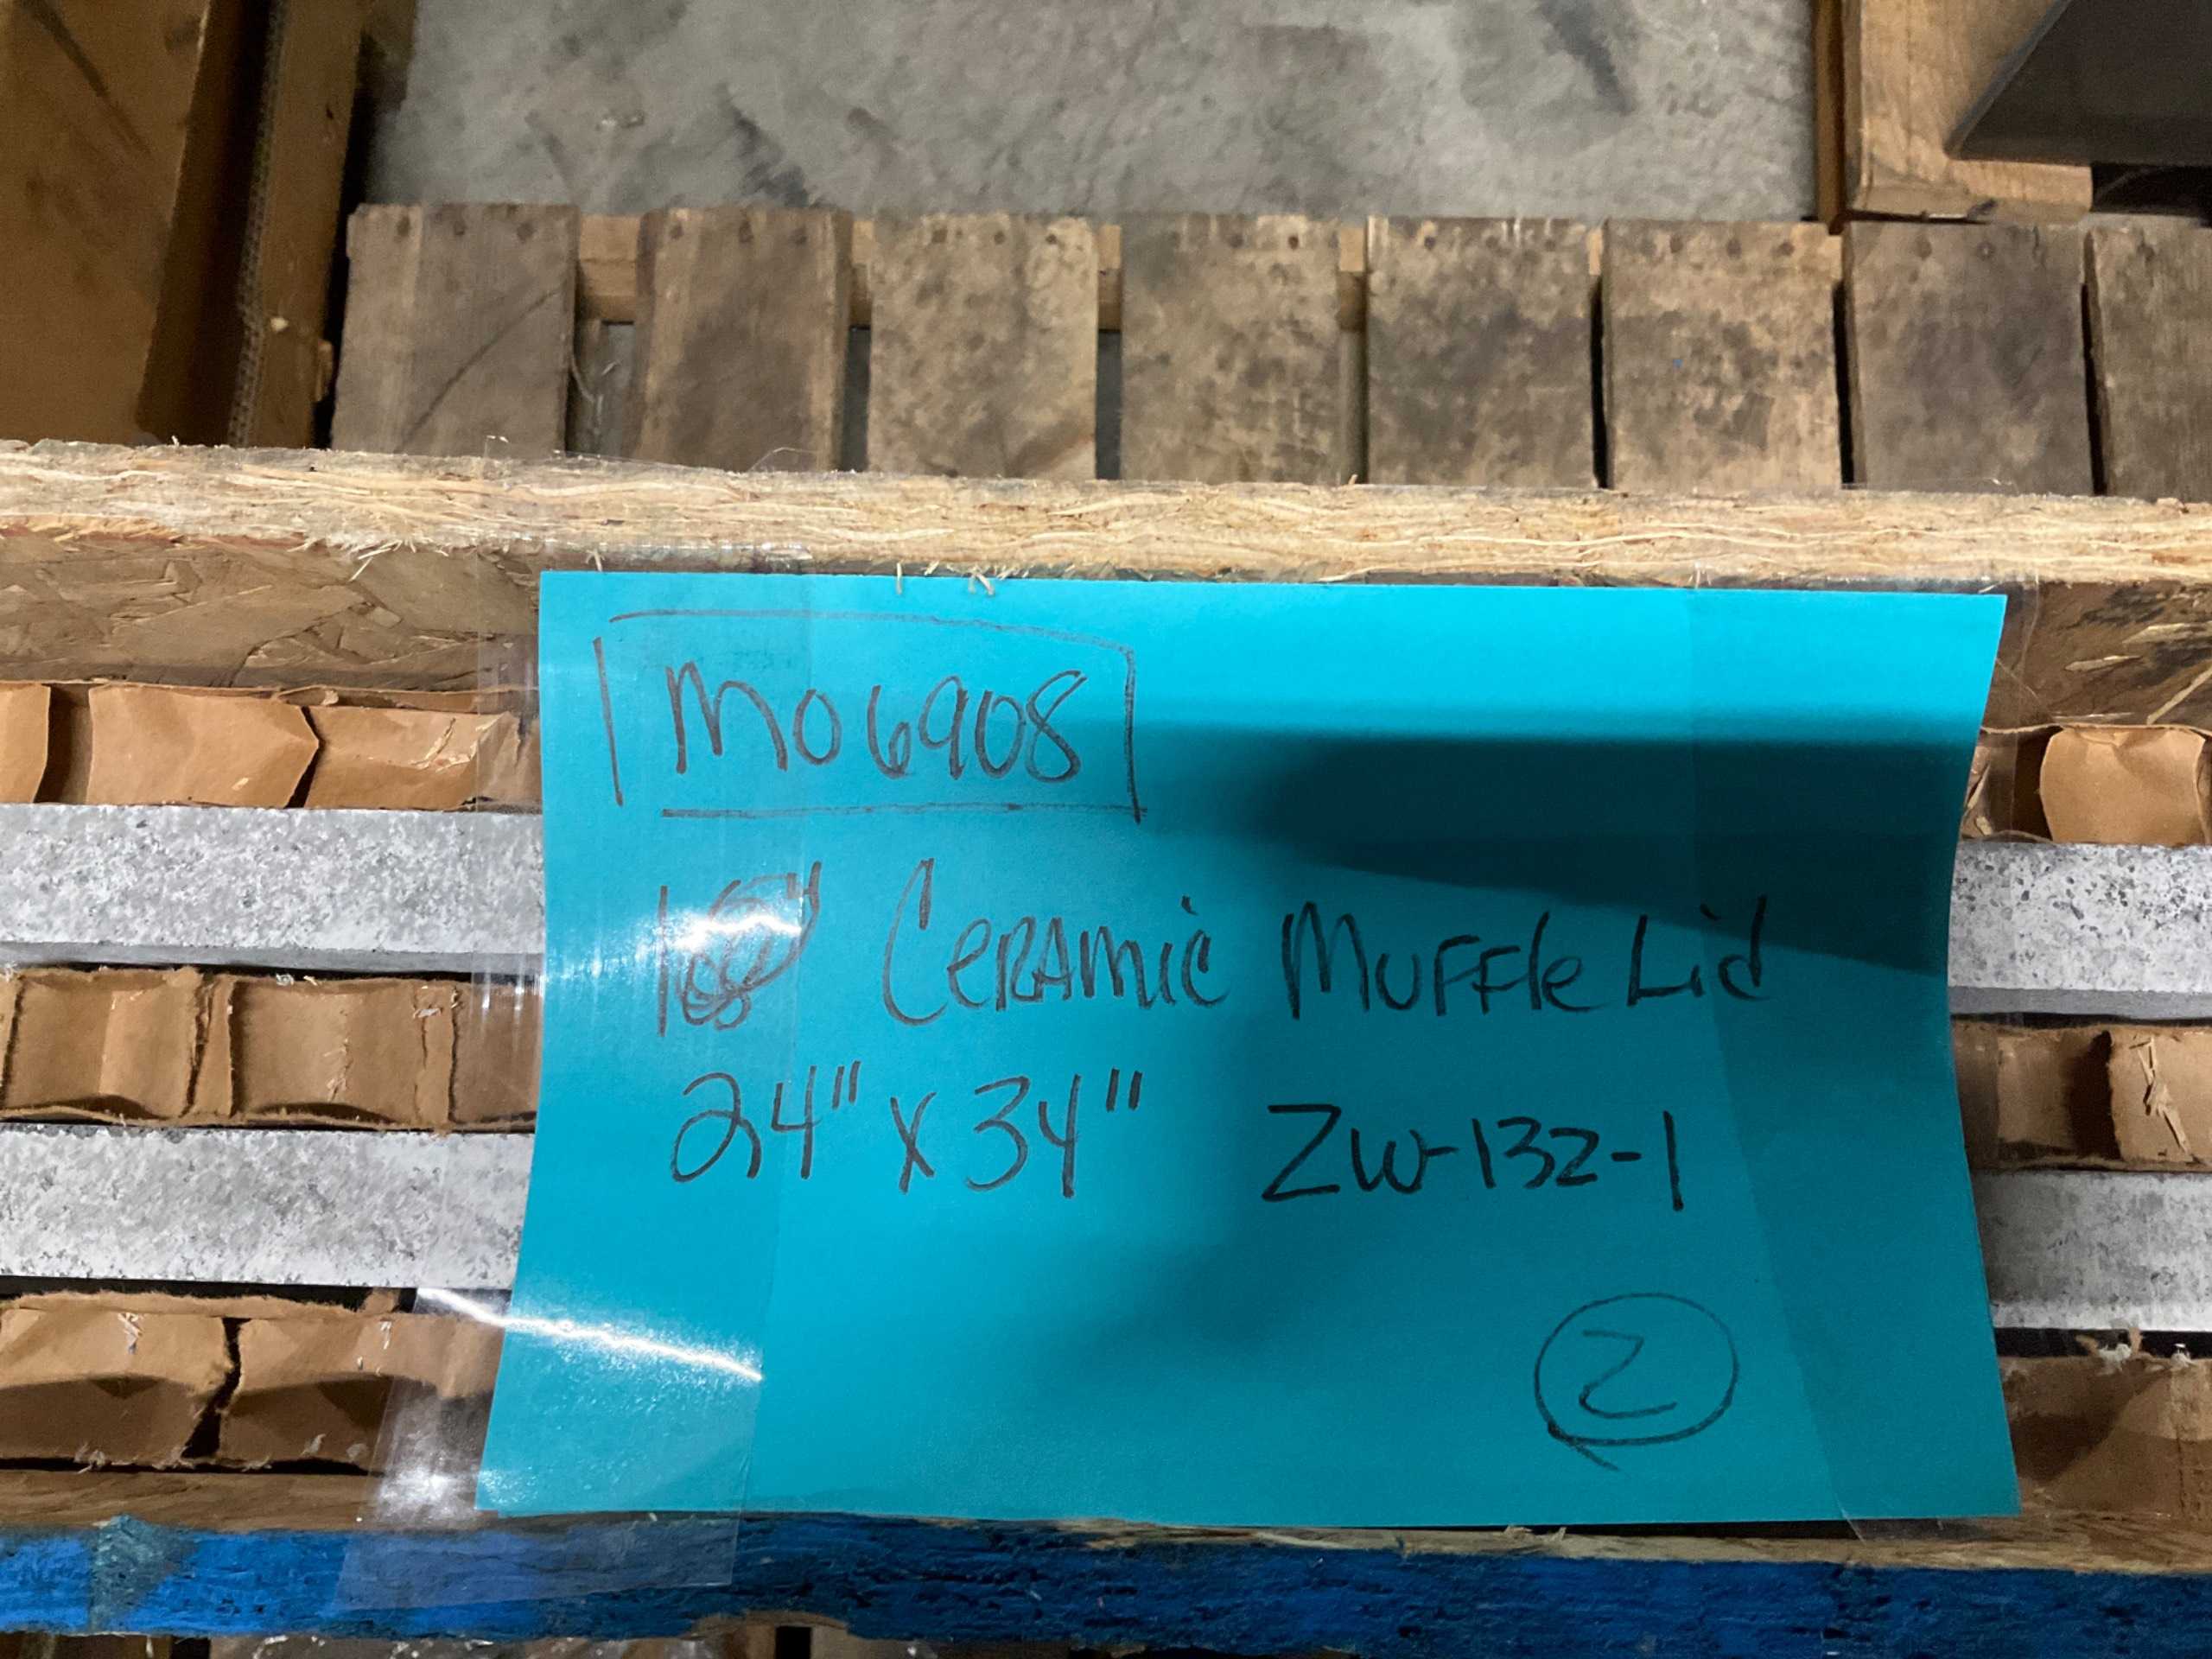 M06908
Ceramic Muffle Lid
24" x 34" ZW-132-1
2